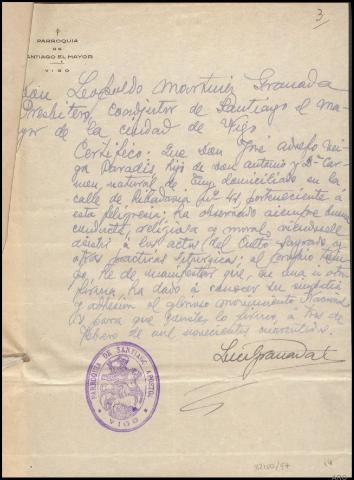 3
PARROQUIA
DE
SANTIAGO EL MAYOR
VIGO
Don Leopoldo Martinez Granada
Presbítero, coadjutor de Santiago el Ma-
yor de la ciudad de Vigo
Certifico: Que don José Adolfo
Paradis, hijo de don Antonio y Dª Car-
men, natural de Tuy domiciliado en la
calle de nº 42, perteneciente á
esta feligresia, ha observado siempre buena
conducta, religiosa y moral, viendosele
asistir á los actos del Culto Sagrado y
otras practicas liturgicas; al propio tiem-
po, he de manifestar que, de una u otra
forma, ha dado á conocer su simpatia
y adhesion al glorioso movimiento Nacional
Y para que conste lo firmo, á tres de
febrero de mil novecientos
PARROQUIA DE SANTIAGO APOSTOL
VIGO
32100/97
14